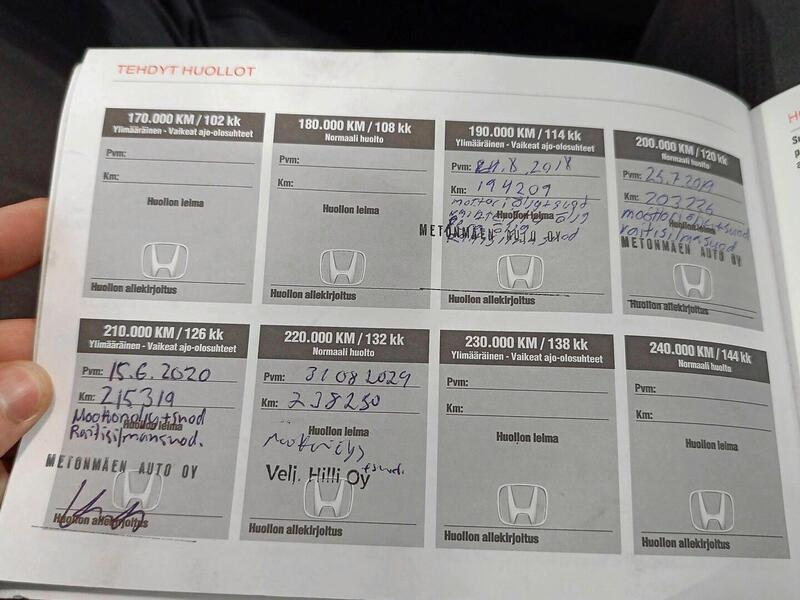 TEHDYT HUOLLOT
170.000 KM / 102 kk
Ylimääräinen - Vaikeat ajo-olosuhteet
Pvm:
Km:
Huollon leima
Huollon allekirjoitus
180.000 KM / 108 kk
Normaali huolto
Pvm:
Km:
Huollon leima
Huollon allekirjoitus
190.000 KM / 114 kk
Ylimääräinen - Vaikeat ajo-olosuhteet
Pvm: .8.2018
Km: 194209
moottoriöljy+suod
Huollon leima
öljy
METONMÄEN AUTO OY
Huollon allekirjoitus
200.000 KM / 120 kk
Normaali huolto
Pvm: 25.7.2019
Km: 203226
moottoriöljy+suod
Huollon leima
raitisilmasuod
METONMÄEN AUTO OY
Huollon allekirjoitus
210.000 KM / 126 kk
Ylimääräinen - Vaikeat ajo-olosuhteet
Pvm: 15.6.2020
Km: 215319
Moottoriöljy+suod
Huollon leima
Raitisilmansuod.
METONMÄEN AUTO OY
Huollon allekirjoitus
220.000 KM / 132 kk
Normaali huolto
Pvm: 31 08 2024
Km: 238250
Huollon leima
moottoriöljy
+suod.
Velj. Hilli Oy
Huollon allekirjoitus
230.000 KM / 138 kk
Ylimääräinen - Vaikeat ajo-olosuhteet
Pvm:
Km:
Huollon leima
Huollon allekirjoitus
240.000 KM / 144 kk
Normaali huolto
Pvm:
Km:
Huollon leima
Huollon allekirjoitus